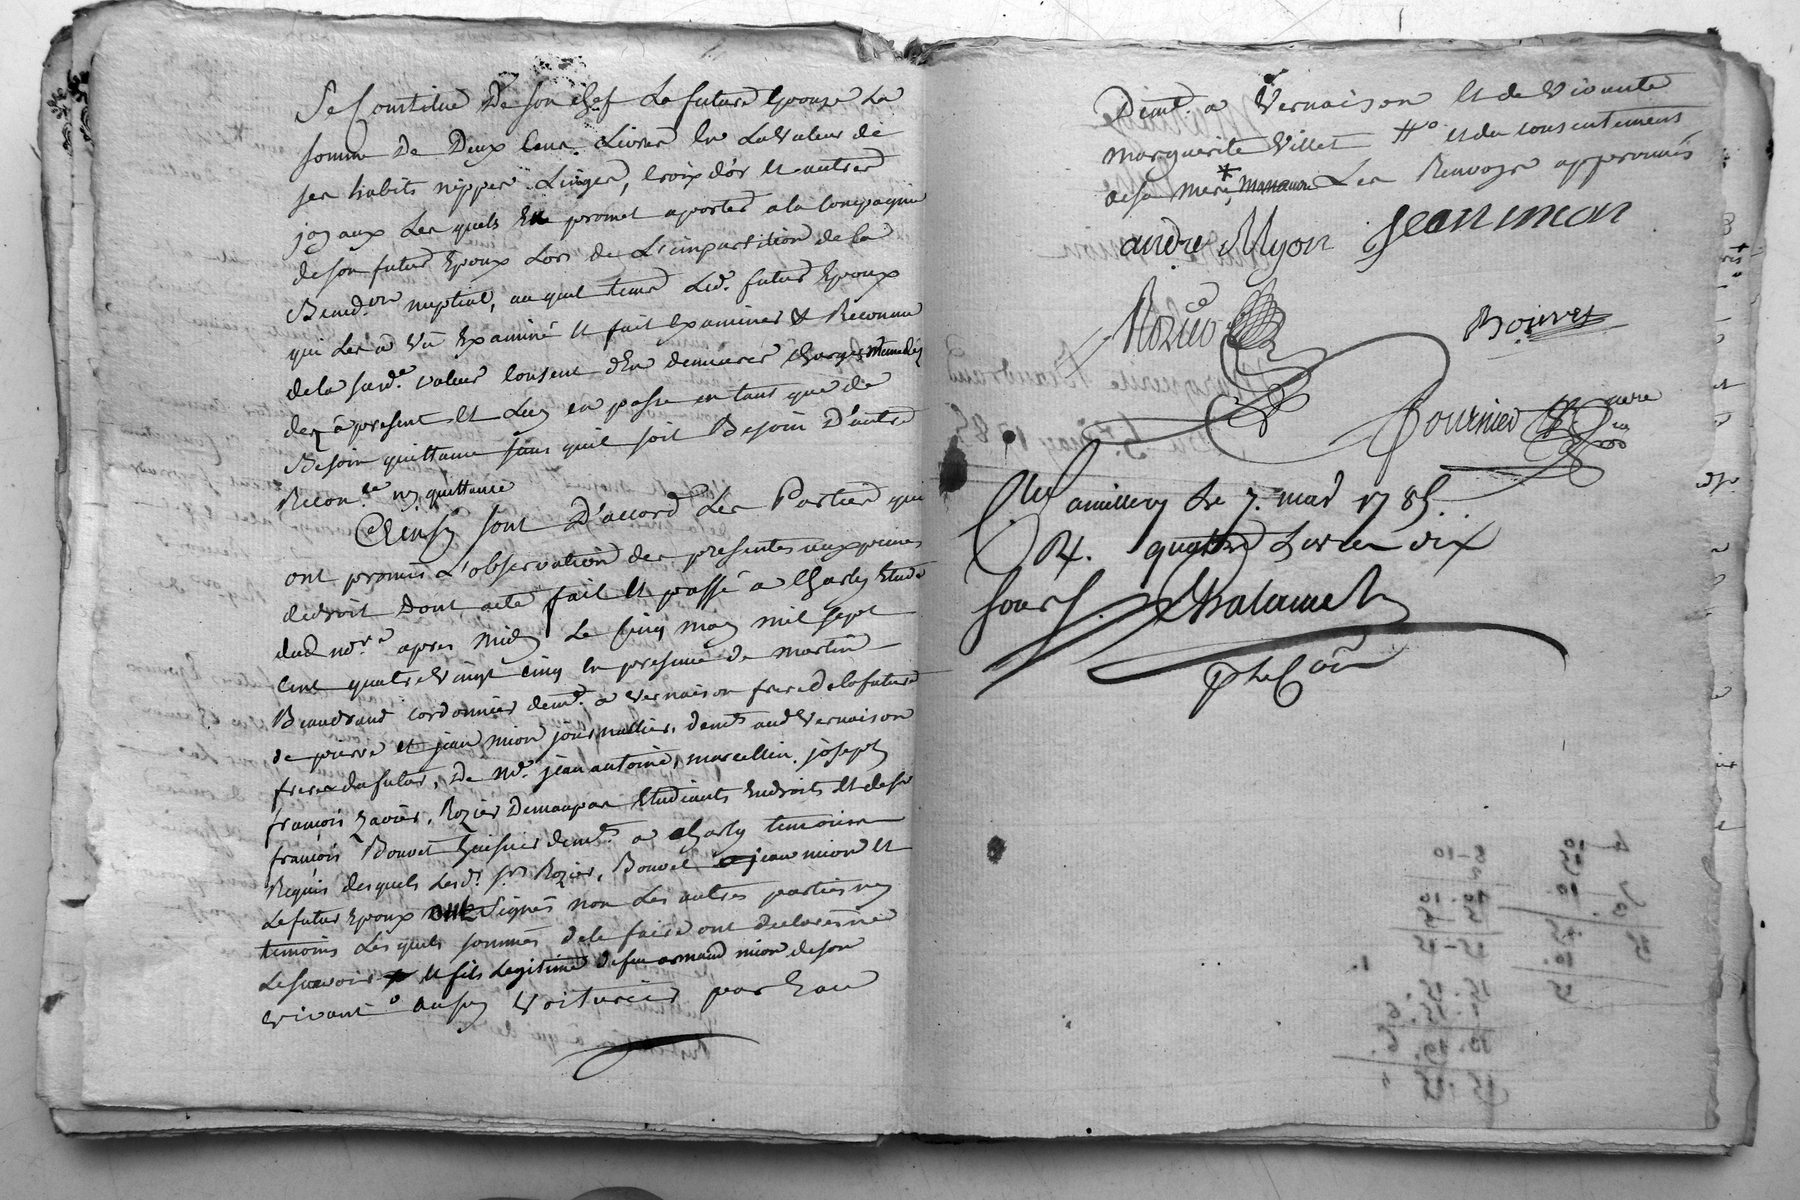 Se Constitue De son chef La future Epouse La
somme De Deux Cent Livres En La valeur de
ses habits nippes Linges, Croix d'or Et autres
joyaux Les quels Elle promet aporter a la Compagnie
de son futur Epoux Lors de L'impartition de la
Bened.on nuptial, au quel tems Led. futur Epoux
qui Les a vû Examiné Et fait Examiner & Reconnu
de la susd.e valeur Consent d'En demeurer chargé
dez à présent Et Luy en passe en tant que de
Besoin quittance sans qu'il soit Besoin D'autre
Recon.ce ny quittance
Ainsy sont D'accord Les Parties qui
ont promis L'observation des presentes aux peines
de droit Dont acte fait Et passé a Charly Etude
dud no.re apres midy Le Cinq may mil sept
Cent quatre vingt cinq En presence de martin
Beaudrand cordonnier dem.t a vernaison frere de la future
de pierre et jean mion journallier, dem.ts aud Vernaison
freres du futur, De m.e jean antoine, marcellin, joseph
françois Xavier, Rozier Etudiants En droits Et de sr
françois Bouvet huissier dem.ts a Charly temoins
Requis desquels Lesd. srs Rozier, Bouvet jean mion et
Le futur Epoux ont Signés non Les autres parties ny
temoins Les quels sommés de le faire ont declarés ne
Le sçavoir Et fils Legitime de feu armand mion de son
vivant aussy Voiturier par Eau
Dem.t a Vernaison Et de Vivante
marguerite Villet #° et du consentement
de sa mere * Les Renvoys approuvés
andre Myon jean mion
Rozier
Bouvet
Bournier
a millery Le 7. may 1785.
R. quatre Livres dix
sous